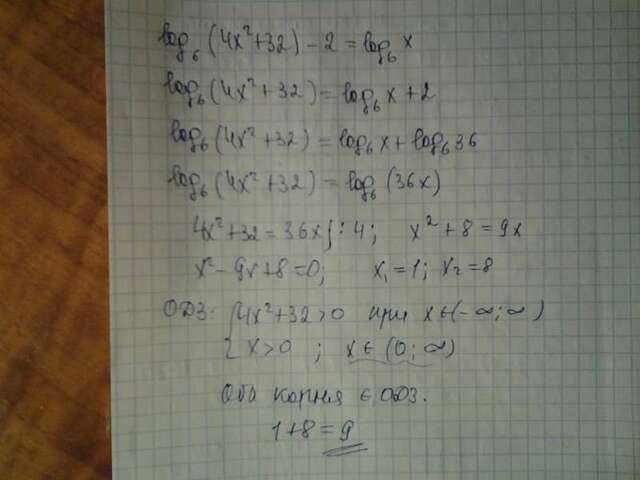 log₆(4x²+32) - 2 = log₆ x
log₆(4x²+32) = log₆ x + 2
log₆(4x²+32) = log₆ x + log₆ 36
log₆(4x²+32) = log₆ (36x)
4x²+32 = 36x} : 4; x² + 8 = 9x
x² - 9x + 8 = 0; x₁ = 1; x₂ = 8
ОДЗ: { 4x²+32 > 0 при x ∈ (-∞; ∞)
{ x > 0 ; x ∈ (0; ∞)
Оба корня ∈ ОДЗ.
1+8 = 9